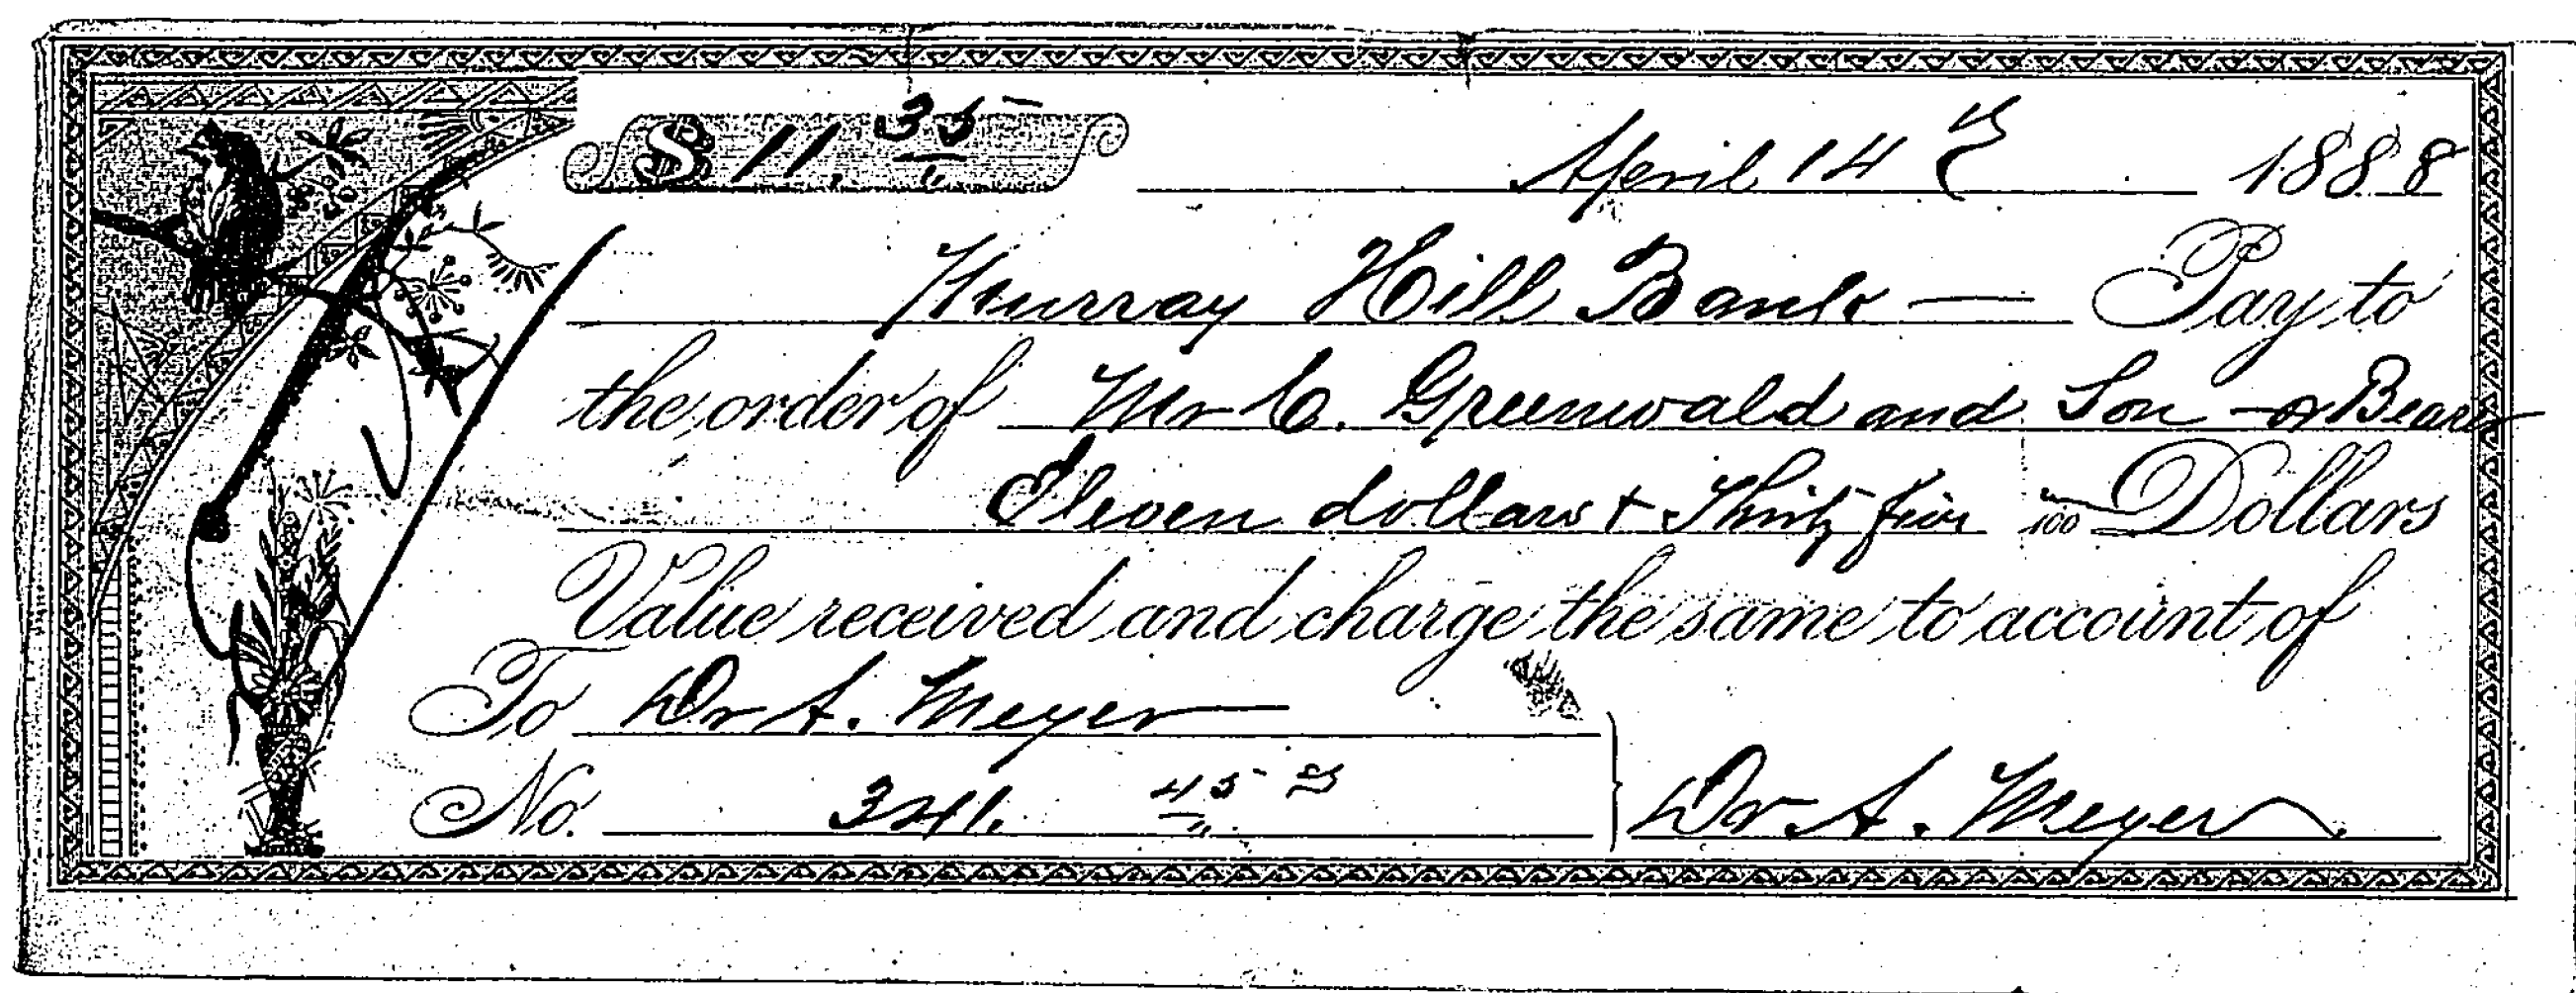 $ 11. 35 April 14th 1888
Murray Hill Bank — Pay to
the order of Mr C. Greenwald and Son or Bearer
Eleven dollars + Thirty five 100 Dollars
Value received and charge the same to account of
To Dr A. Meyer
No. 341. 45 Dr A. Meyer